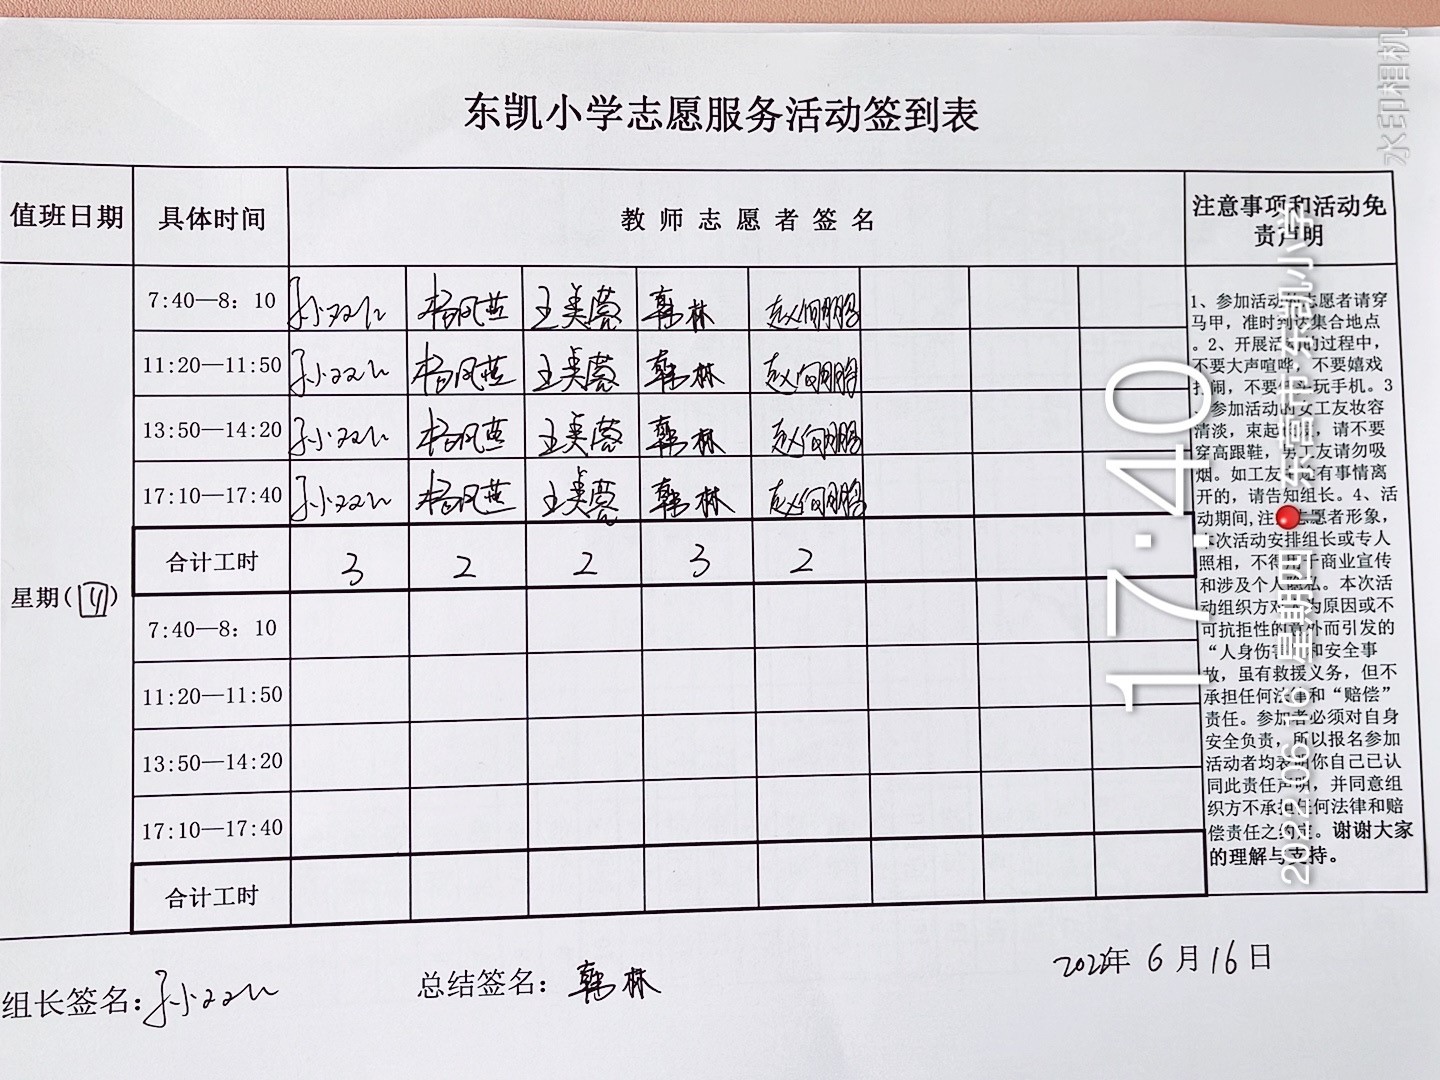 东凯小学志愿服务活动签到表
值班日期 具体时间 教师志愿者签名 注意事项和活动免
责声明
7:40—8：10 杨凤燕 王美蓉 韩林 赵向鹏
11:20—11:50 杨凤燕 王美蓉 韩林 赵向鹏
13:50—14:20 杨凤燕 王美蓉 韩林 赵向鹏
17:10—17:40 杨凤燕 王美蓉 韩林 赵向鹏
合计工时 3 2 2 3 2
星期(四)
7:40—8：10
11:20—11:50
13:50—14:20
17:10—17:40
合计工时
1、参加活动的志愿者请穿
马甲，准时到达集合地点
。2、开展活动的过程中，
不要大声喧哗，不要嬉戏
打闹，不要低头玩手机。3
、参加活动的女工友妆容
清淡，束起长发，请不要
穿高跟鞋，男工友请勿吸
烟。如工友有事情离
开的，请告知组长。4、活
动期间,注意志愿者形象，
本次活动安排组长或专人
照相，不得用于商业宣传
和涉及个人隐私。本次活
动组织方对人为原因或不
可抗拒性的意外而引发的
“人身伤害”和安全事
故，虽有救援义务，但不
承担任何法律和“赔偿”
责任。参加者必须对自身
安全负责，所以报名参加
活动者均表明你自己已认
同此责任声明，并同意组
织方不承担任何法律和赔
偿责任之约定。谢谢大家
的理解与支持。
组长签名： 总结签名：韩林 2022年6月16日
17:40
2022.06.16 星期四 东营市·东凯小学
水印相机